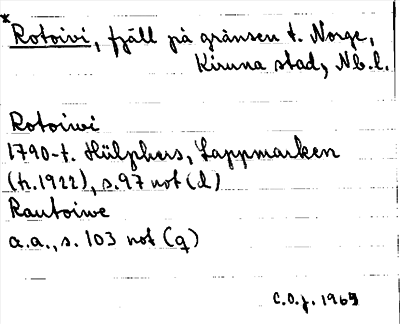 *Rotoivi, fjäll på gränsen t. Norge,
Kiruna stad, Nb.l.
Rotoiwi
1790-t. Hülphers, Lappmarken
(tr. 1922), s. 97 not (d)
Rautoiwe
a.a., s. 103 not (q)
C.O.j. 1965